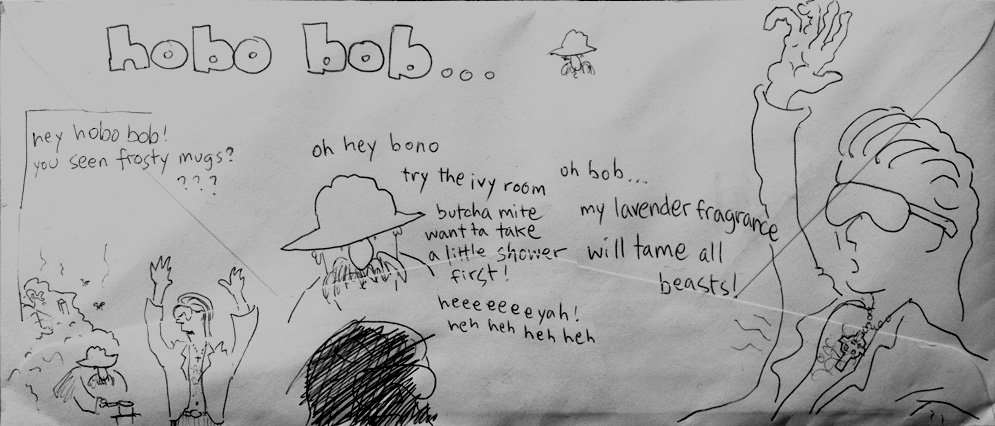 hobo bob...
hey hobo bob!
you seen frosty mugs?
???
oh hey bono
try the ivy room
butcha mite
want ta take
a little shower
first!
heeeeeeeyah!
heh heh heh heh
oh bob...
my lavender fragrance
will tame all
beasts!